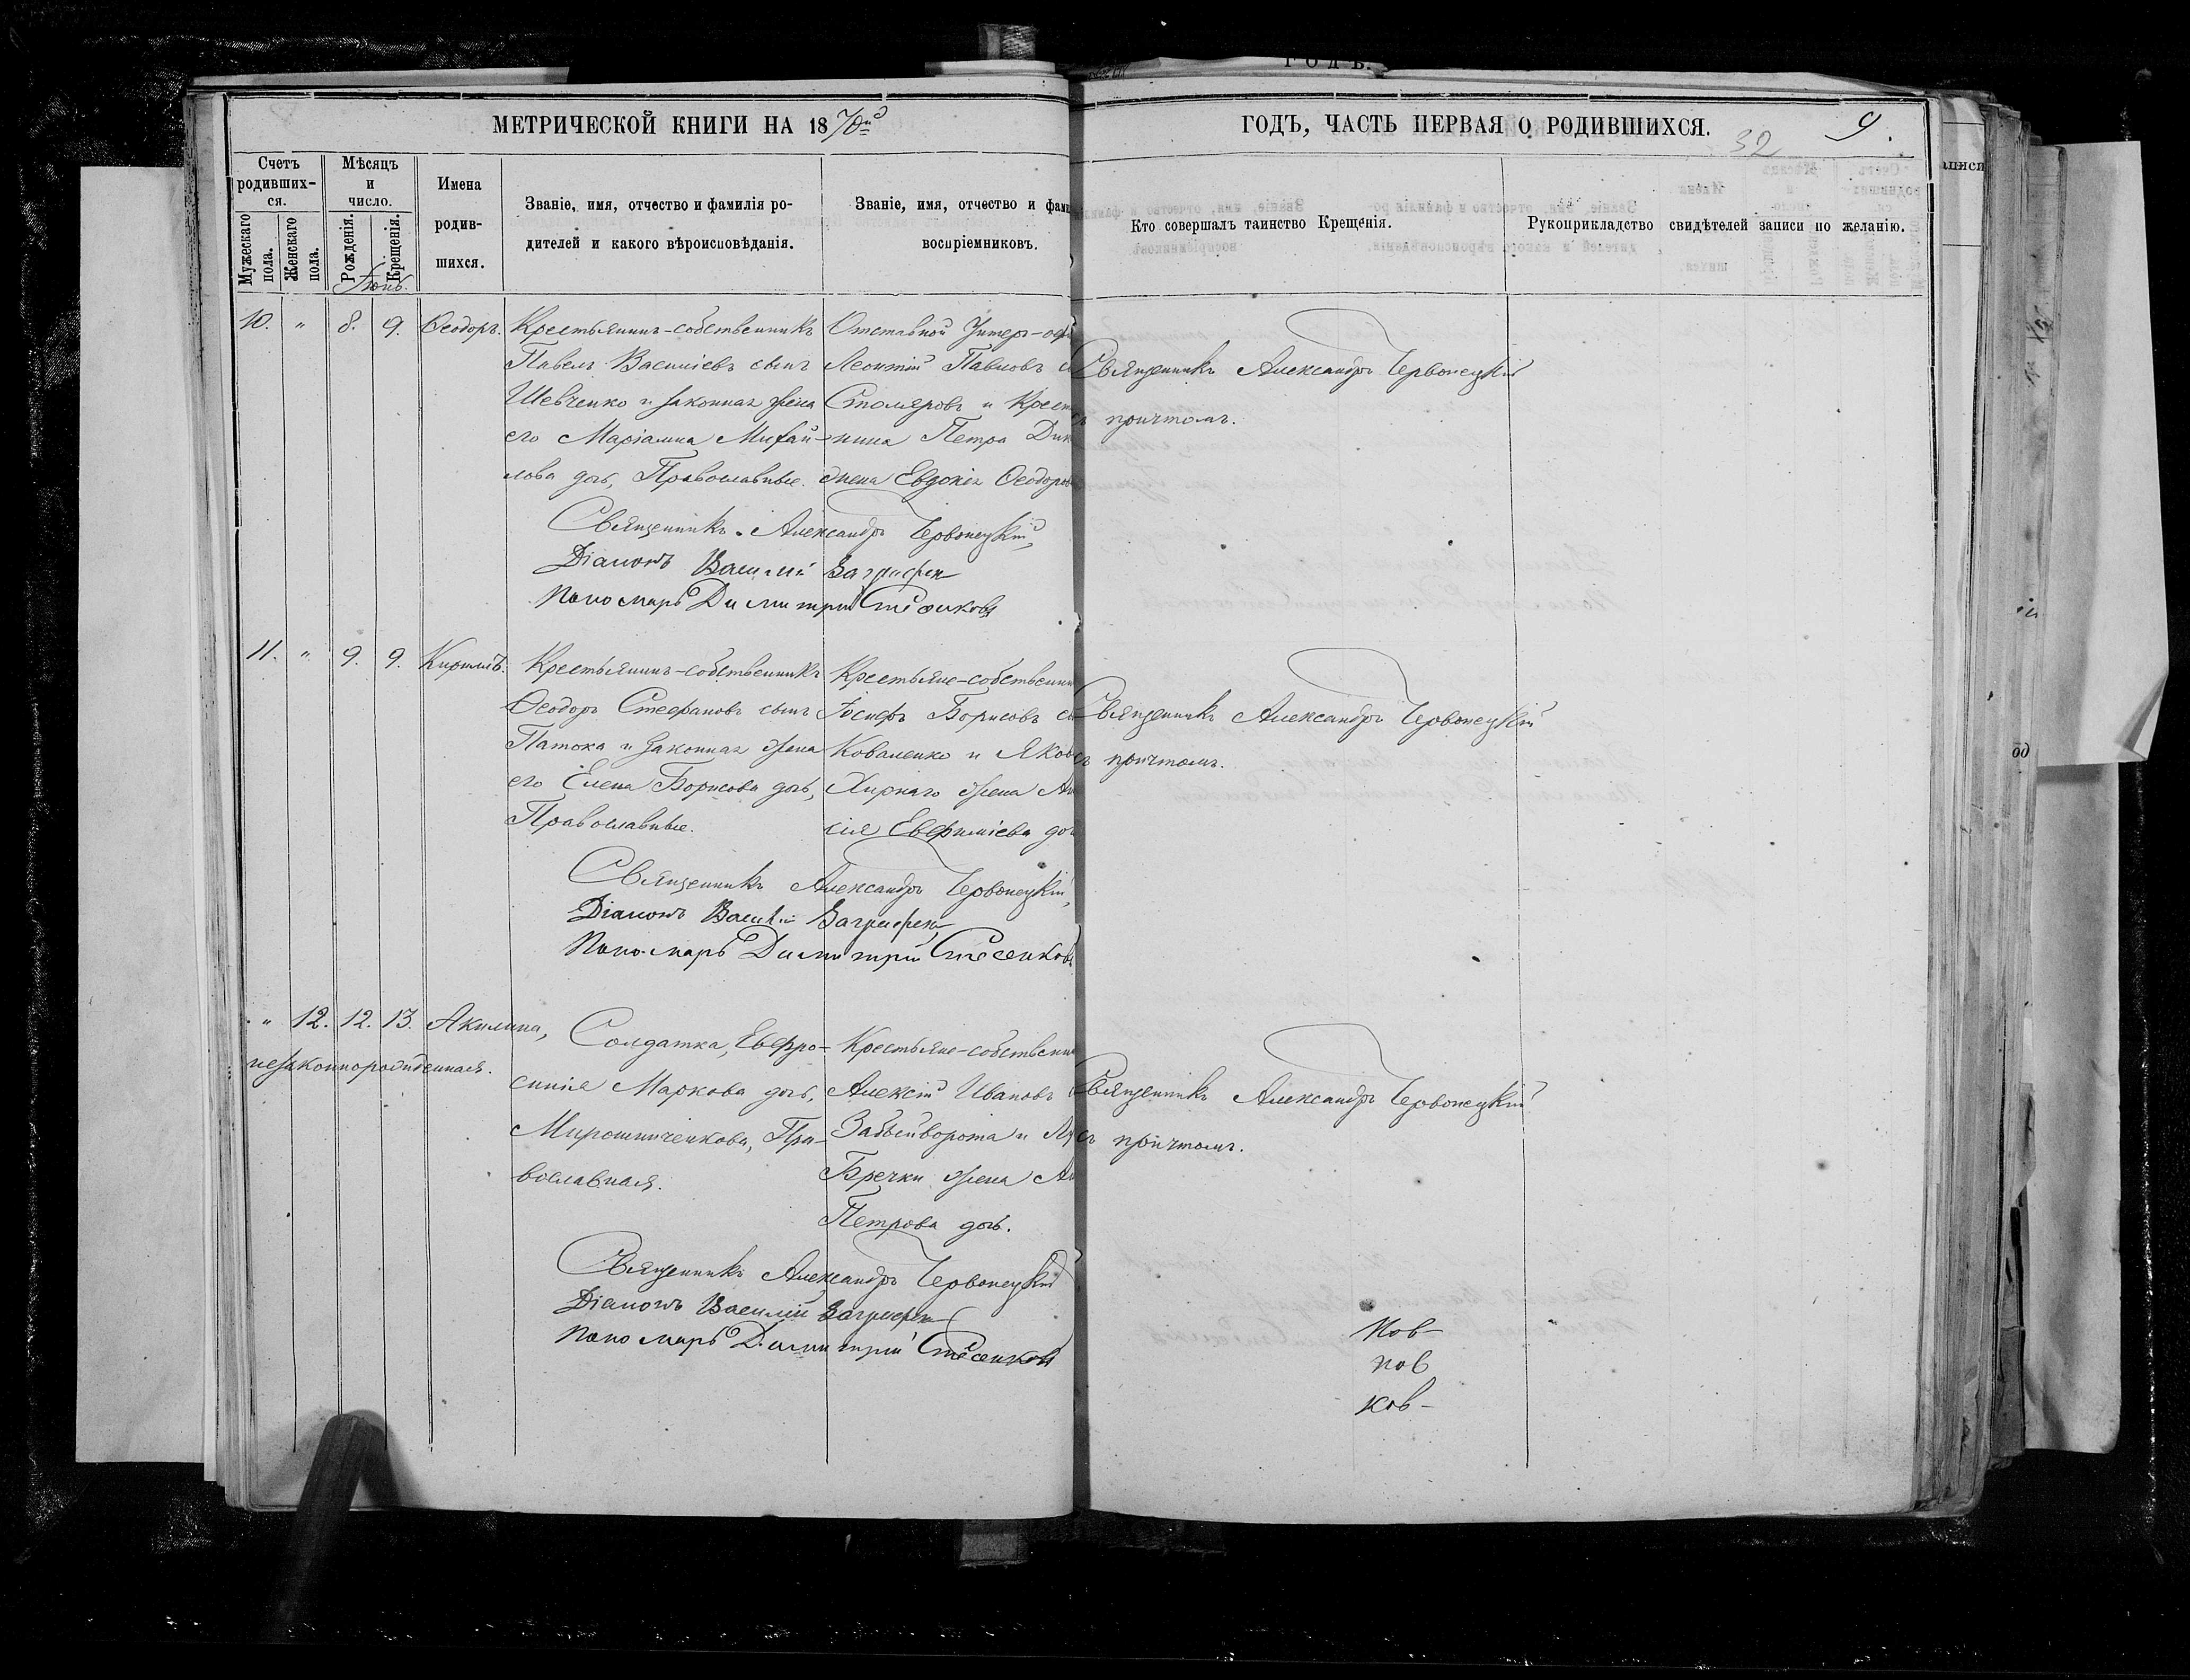 МЕТРИЧЕСКОЙ КНИГИ НА 1870й
Счетъ родивших-ся.
Мужескаго пола.
Женскаго пола.
Мѣсяцъ и число.
Рожденія.
Крещенія.
Имена родив-шихся.
Званіе, имя, отчество и фамилія ро-
дителей и какого вѣроисповѣданія.
Званіе, имя, отчество и фами
воспріемниковъ.
Іюнь.
10. " 8. 9. Ѳеодоръ.
Крестьянинъ-собственникъ
Павелъ Василіевъ сынъ
Шевченко и законная жена
его Маріамна Михаи-
лова дочь, Православные.
Отставной Унтеръ-офи
Леонтій Павловъ с
Столяровъ и Крест
нина Петра Дик
жена Евдокія Ѳеодоров
Священникъ Александръ Червонецкій,
Діаконъ Василій
Пономарь Димитрій
11. " 9. 9. Кириллъ.
Крестьянинъ-собственникъ
Ѳеодоръ Стефановъ сынъ
Патока и законная жена
его Елена Борисова дочь,
Православные.
Крестьяне-собственни
Іосифъ Борисовъ сы
Коваленко и Яков
Хирнаго жена Ан
сія Евфиміева доч
Священникъ Александръ Червонецкій,
Діаконъ Василій
Пономарь Димитрій
" 12. 12. 13. Акилина,
незаконнорожденная.
Солдатка, Евфро-
синія Маркова дочь,
Мирошниченкова, Пра-
вославная.
Крестьяне-собственни
Алексій Ивановъ
Забейворота и Лу
Бречки жена Ан
Петрова дочь.
Священникъ Александръ Червонецкій
Діаконъ Василій
Пономарь Димитрій
ГОДЪ.
ГОДЪ, ЧАСТЬ ПЕРВАЯ О РОДИВШИХСЯ.
32
9.
Кто совершалъ таинство Крещенія.
Рукоприкладство свидѣтелей записи по желанію.
Священникъ Александръ Червонецкій
съ причтомъ.
Священникъ Александръ Червонецкій
съ причтомъ.
Священникъ Александръ Червонецкій
съ причтомъ.
Ков-
пов
ков-